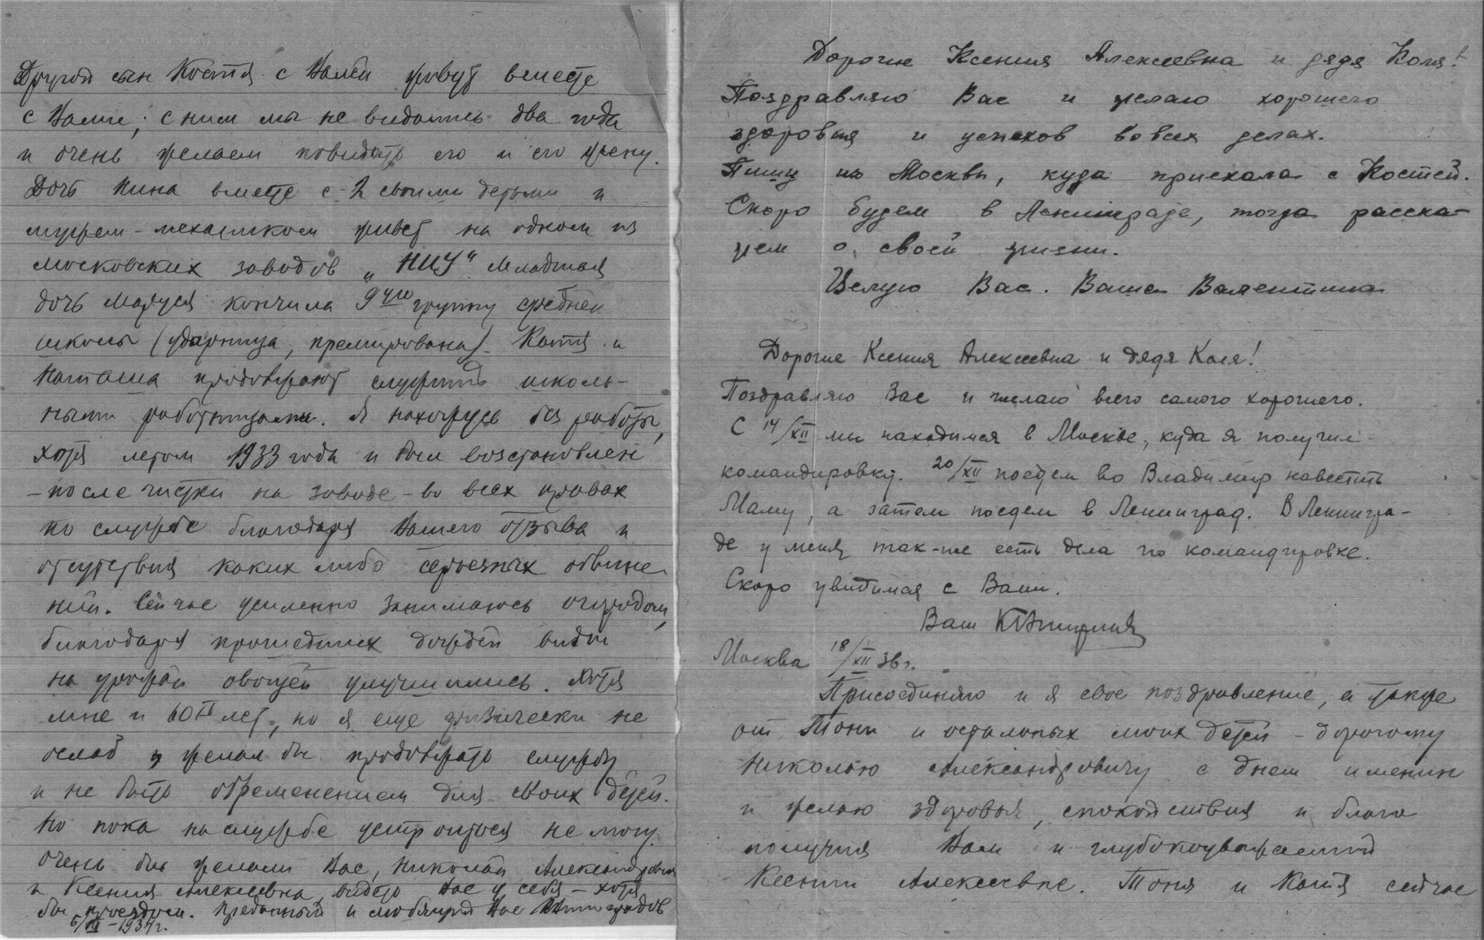 Другой сын Костя с Валей живут вместе
с Вами; с ним мы не видались два года
и очень желаем повидать его и его жену.
Дочь Нина вместе с 2 своими детьми и
мужем-механиком живет на одном из
московских заводов „НИУ“. Младшая
дочь Маруся кончила 9ую группу средней
школы (ударница, премирована). Катя и
Наташа продолжают служить школь-
ными работницами. Я нахожусь без работы,
хотя летом 1933 года и был возстановлен
- после чистки на заводе - во всех правах
по службе благодаря Вашего отзыва и
отсутствия каких либо серьезных обвине-
ний. Сейчас усиленно занимаюсь огородом,
благодаря прошедших дождей виды
на урожай овощей улучшились. Хотя
мне и 60 лет, но я еще физически не
ослаб и желал бы продолжать службу
и не быть обременением для своих детей.
Но пока на службе устроиться не могу.
Очень бы желали Вас, Николай Александрович
и Ксения Алексеевна, видеть Вас у себя - хотя
бы проездом. Преданный и любящий Вас
1934 г.
Дорогие Ксения Алексеевна и дядя Коля!
Поздравляю Вас и желаю хорошего
здоровья и успехов во всех делах.
Пишу из Москвы, куда приехала с Костей.
Скоро будем в Ленинграде, тогда расска-
жем о своей жизни.
Целую Вас. Ваша Валентина
Дорогие Ксения Алексеевна и дядя Коля!
Поздравляю Вас и желаю всего самого хорошего.
С 14/XII мы находимся в Москве, куда я получил
командировку. 20/XII поедем во Владимир навестить
Маму, а затем поедем в Ленинград. В Ленингра-
де у меня так-же есть дела по командировке.
Скоро увидимся с Вами.
Ваш
Москва 18/XII 36 г.
Присоединяю и я свое поздравление, а также
от Тони и остальных моих детей - дорогому
Николаю Александровичу с днем именин
и желаю здоровья, спокойствия и благо
получия Вам и глубокоуважаемой
Ксении Алексеевне. Тоня и Катя сейчас